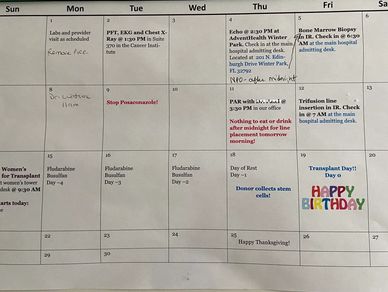 Sun Mon Tue Wed Thur Fri Sa
1
Labs and provider
visit as scheduled
Remove Picc
2
PFT, EKG and Chest X-
Ray @ 1:30 PM in Suite
370 in the Cancer Insti-
tute
3
4
Echo @ 2:30 PM at
AdventHealth Winter
Park. Check in at the main
hospital admitting desk.
Located at 201 N. Edin-
burgh Drive Winter Park,
FL 32792
NPO - after midnight
5
Bone Marrow Biopsy
in IR. Check in @ 6:30
AM at the main hospital
admitting desk.
6
8
11am
9
Stop Posaconazole!
10
11
PAR with
3:30 PM in our office
Nothing to eat or drink
after midnight for line
placement tomorrow
morning!
12
Trifusion line
insertion in IR. Check
in @ 7 AM at the main
hospital admitting desk.
13
Women's
for Transplant
t women's tower
desk @ 9:30 AM
arts today:
15
Fludarabine
Busulfan
Day -4
16
Fludarabine
Busulfan
Day -3
17
Fludarabine
Busulfan
Day -2
18
Day of Rest
Day -1
Donor collects stem
cells!
19
Transplant Day!!
Day 0
HAPPY
BIRTHDAY
20
22
23
24
25
Happy Thanksgiving!
26
27
29
30